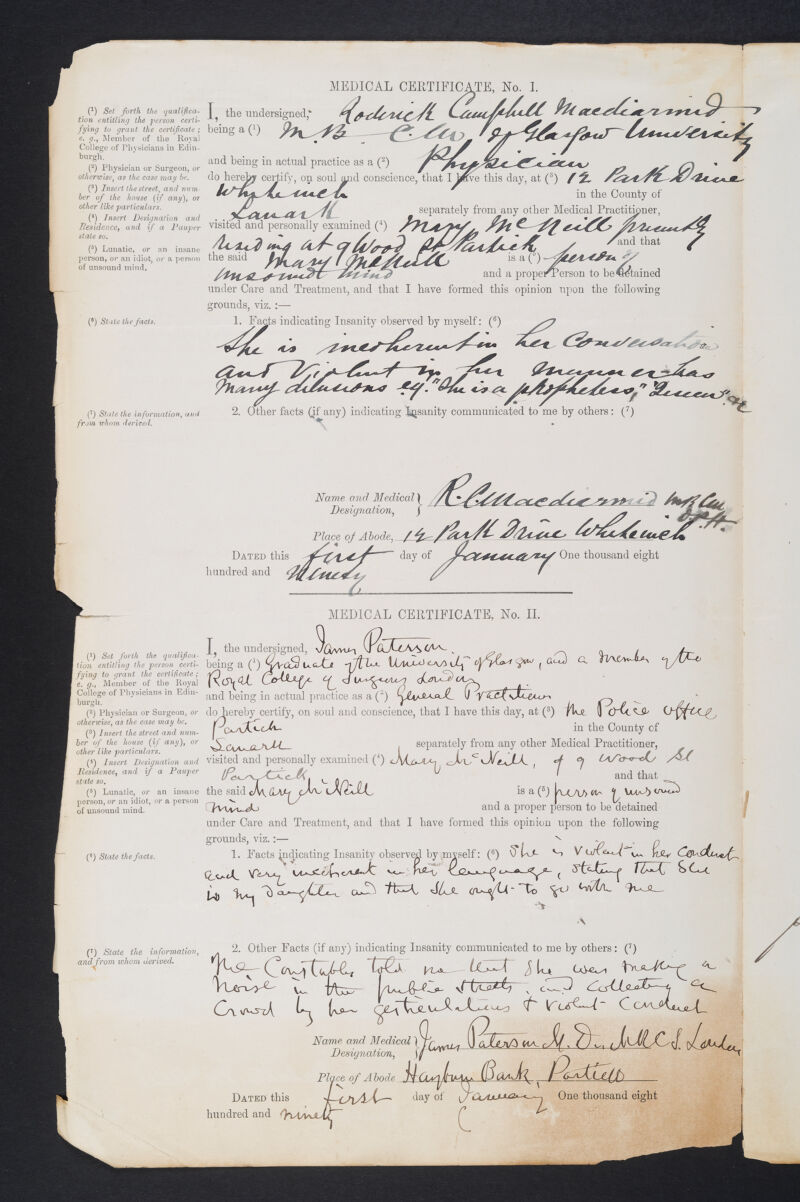 MEDICAL CERTIFICATE, No. I.
(1) Set forth the qualifica-
tion entitling the person certi-
fying to grant the certificate;
e. g., Member of the Royal
College of Physicians in Edin-
burgh.
(2) Physician or Surgeon, or
otherwise, as the case may be.
(3) Insert the street, and num-
ber of the house (if any), or
other like particulars.
(4) Insert Designation and
Residence, and if a Pauper
state so.
(5) Lunatic, or an insane
person, or an idiot, or a person
of unsound mind.
I, the undersigned, Roderick Campbell Macdiarmid
being a (1) M.B. C.M. of Glasgow University
and being in actual practice as a (2) Physician
do hereby certify, on soul and conscience, that I have this day, at (3) 12 Park Drive
Whiteinch in the County of
Lanark separately from any other Medical Practitioner,
visited and personally examined (4) Mary McNeill presently
residing at 9 Wood St Partick and that
the said Mary McNeill is a (5) person of
unsound mind and a proper Person to be detained
under Care and Treatment, and that I have formed this opinion upon the following
grounds, viz. :—
(6) State the facts.
1. Facts indicating Insanity observed by myself: (6)
She is incoherent in her conversation
and violent in her manner - has
many delusions e.g. "She is a prophetess," "Queen" &c
(7) State the information, and
from whom derived.
2. Other facts (if any) indicating Insanity communicated to me by others: (7)
Name and Medical Designation, R. C. Macdiarmid M.B. C.M.
D.P.H.
Place of Abode, 12 Park Drive Whiteinch
DATED this first day of January One thousand eight
hundred and Ninety
MEDICAL CERTIFICATE, No. II.
(1) Set forth the qualifica-
tion entitling the person certi-
fying to grant the certificate;
e. g., Member of the Royal
College of Physicians in Edin-
burgh.
(2) Physician or Surgeon, or
otherwise, as the case may be.
(3) Insert the street and num-
ber of the house (if any), or
other like particulars.
(4) Insert Designation and
Residence, and if a Pauper
state so.
(5) Lunatic, or an insane
person, or an idiot, or a person
of unsound mind.
I, the undersigned, James Paterson
being a (1) Graduate of the University of Glasgow, and a Member of the
Royal College of Surgeons London
and being in actual practice as a (2) General Practitioner
do hereby certify, on soul and conscience, that I have this day, at (3) the Police office
Partick in the County of
Lanark separately from any other Medical Practitioner,
visited and personally examined (4) Mary McNeill, of 9 Wood St
Partick and that
the said Mary McNeill is a (5) person of unsound
mind and a proper person to be detained
under Care and Treatment, and that I have formed this opinion upon the following
grounds, viz. :—
(6) State the facts.
1. Facts indicating Insanity observed by myself: (6) She is violent in her conduct
and very incoherent in her language, stating that she
is my daughter and that she ought to go with me
(7) State the information,
and from whom derived.
2. Other Facts (if any) indicating Insanity communicated to me by others: (7)
The Constables told me that she was making a
noise in the public streets and collecting a
crowd by her gesticulations & violent conduct
Name and Medical Designation, James Paterson M.D. M.R.C.S. London
Place of Abode Hayburn Bank, Partick
DATED this first day of January One thousand eight
hundred and ninety